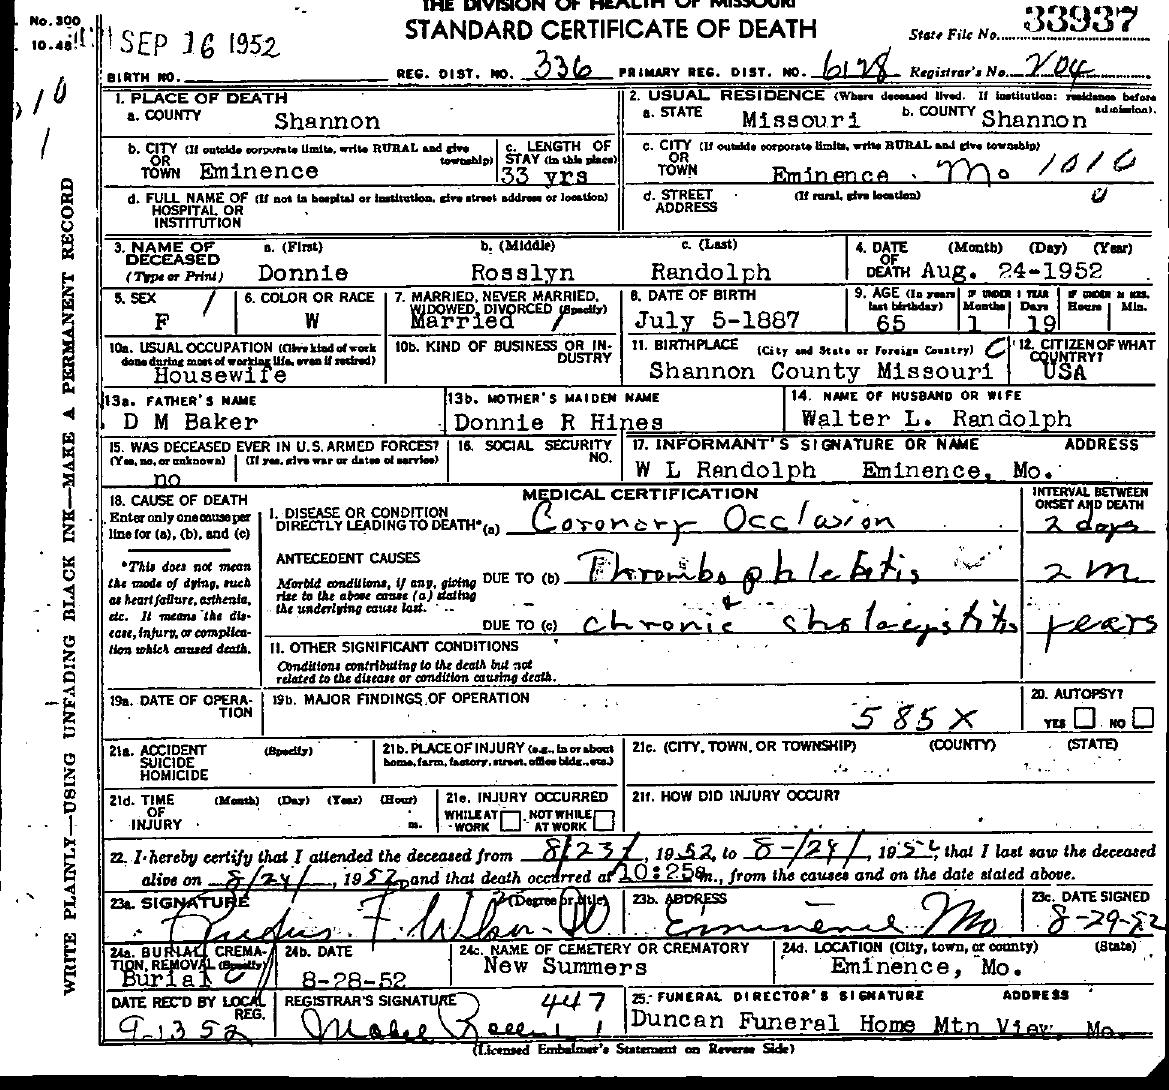 THE DIVISION OF HEALTH OF MISSOURI
STANDARD CERTIFICATE OF DEATH
No. 300
10-48
SEP 16 1952
State File No. 33937
BIRTH NO. REG. DIST. NO. 336 PRIMARY REG. DIST. NO. 6128 Registrar's No. 204
WRITE PLAINLY—USING UNFADING BLACK INK—MAKE A PERMANENT RECORD
1. PLACE OF DEATH
a. COUNTY Shannon
2. USUAL RESIDENCE (Where deceased lived. If institution: residence before admission).
a. STATE Missouri b. COUNTY Shannon
b. CITY (If outside corporate limits, write RURAL and give township) OR TOWN Eminence
c. LENGTH OF STAY (in this place) 33 yrs
c. CITY (If outside corporate limits, write RURAL and give township) OR TOWN Eminence Mo 1010
d. FULL NAME OF (If not in hospital or institution, give street address or location) HOSPITAL OR INSTITUTION
d. STREET ADDRESS (If rural, give location) 0
3. NAME OF DECEASED (Type or Print)
a. (First) Donnie b. (Middle) Rosslyn c. (Last) Randolph
4. DATE OF DEATH (Month) (Day) (Year) Aug. 24-1952
5. SEX F
6. COLOR OR RACE W
7. MARRIED, NEVER MARRIED, WIDOWED, DIVORCED (Specify) Married
8. DATE OF BIRTH July 5-1887
9. AGE (In years last birthday) 65 IF UNDER 1 YEAR Months 1 Days 19 IF UNDER 24 HRS. Hours Min.
10a. USUAL OCCUPATION (Give kind of work done during most of working life, even if retired) Housewife
10b. KIND OF BUSINESS OR INDUSTRY
11. BIRTHPLACE (City and State or Foreign Country) Shannon County Missouri
12. CITIZEN OF WHAT COUNTRY? USA
13a. FATHER'S NAME D M Baker
13b. MOTHER'S MAIDEN NAME Donnie R Hines
14. NAME OF HUSBAND OR WIFE Walter L. Randolph
15. WAS DECEASED EVER IN U.S. ARMED FORCES? (Yes, no, or unknown) (If yes, give war or dates of service) no
16. SOCIAL SECURITY NO.
17. INFORMANT'S SIGNATURE OR NAME ADDRESS
W L Randolph Eminence, Mo.
18. CAUSE OF DEATH
Enter only one cause per line for (a), (b), and (c)
*This does not mean the mode of dying, such as heart failure, asthenia, etc. It means the disease, injury, or complication which caused death.
MEDICAL CERTIFICATION
INTERVAL BETWEEN ONSET AND DEATH
I. DISEASE OR CONDITION DIRECTLY LEADING TO DEATH* (a) Coronary Occlusion 2 days
ANTECEDENT CAUSES
Morbid conditions, if any, giving rise to the above cause (a) stating the underlying cause last.
DUE TO (b) Thrombophlebitis 2 m
&
DUE TO (c) chronic cholecystitis years
II. OTHER SIGNIFICANT CONDITIONS
Conditions contributing to the death but not related to the disease or condition causing death.
19a. DATE OF OPERATION
19b. MAJOR FINDINGS OF OPERATION 585X
20. AUTOPSY? YES NO
21a. ACCIDENT SUICIDE HOMICIDE (Specify)
21b. PLACE OF INJURY (e.g., in or about home, farm, factory, street, office bldg., etc.)
21c. (CITY, TOWN, OR TOWNSHIP) (COUNTY) (STATE)
21d. TIME OF INJURY (Month) (Day) (Year) (Hour) m.
21e. INJURY OCCURRED WHILE AT WORK NOT WHILE AT WORK
21f. HOW DID INJURY OCCUR?
22. I hereby certify that I attended the deceased from 8/23/, 1952, to 8-/24/, 1952, that I last saw the deceased
alive on 8/24/, 1952, and that death occurred at 10:25am., from the causes and on the date stated above.
23a. SIGNATURE (Degree or title)
23b. ADDRESS Eminence Mo
23c. DATE SIGNED 8-29-52
24a. BURIAL, CREMATION, REMOVAL (Specify) Burial
24b. DATE 8-28-52
24c. NAME OF CEMETERY OR CREMATORY New Summers
24d. LOCATION (City, town, or county) (State) Eminence, Mo.
DATE REC'D BY LOCAL REG. 9-13 52
REGISTRAR'S SIGNATURE 447
25. FUNERAL DIRECTOR'S SIGNATURE ADDRESS
Duncan Funeral Home Mtn View, Mo.
(Licensed Embalmer's Statement on Reverse Side)